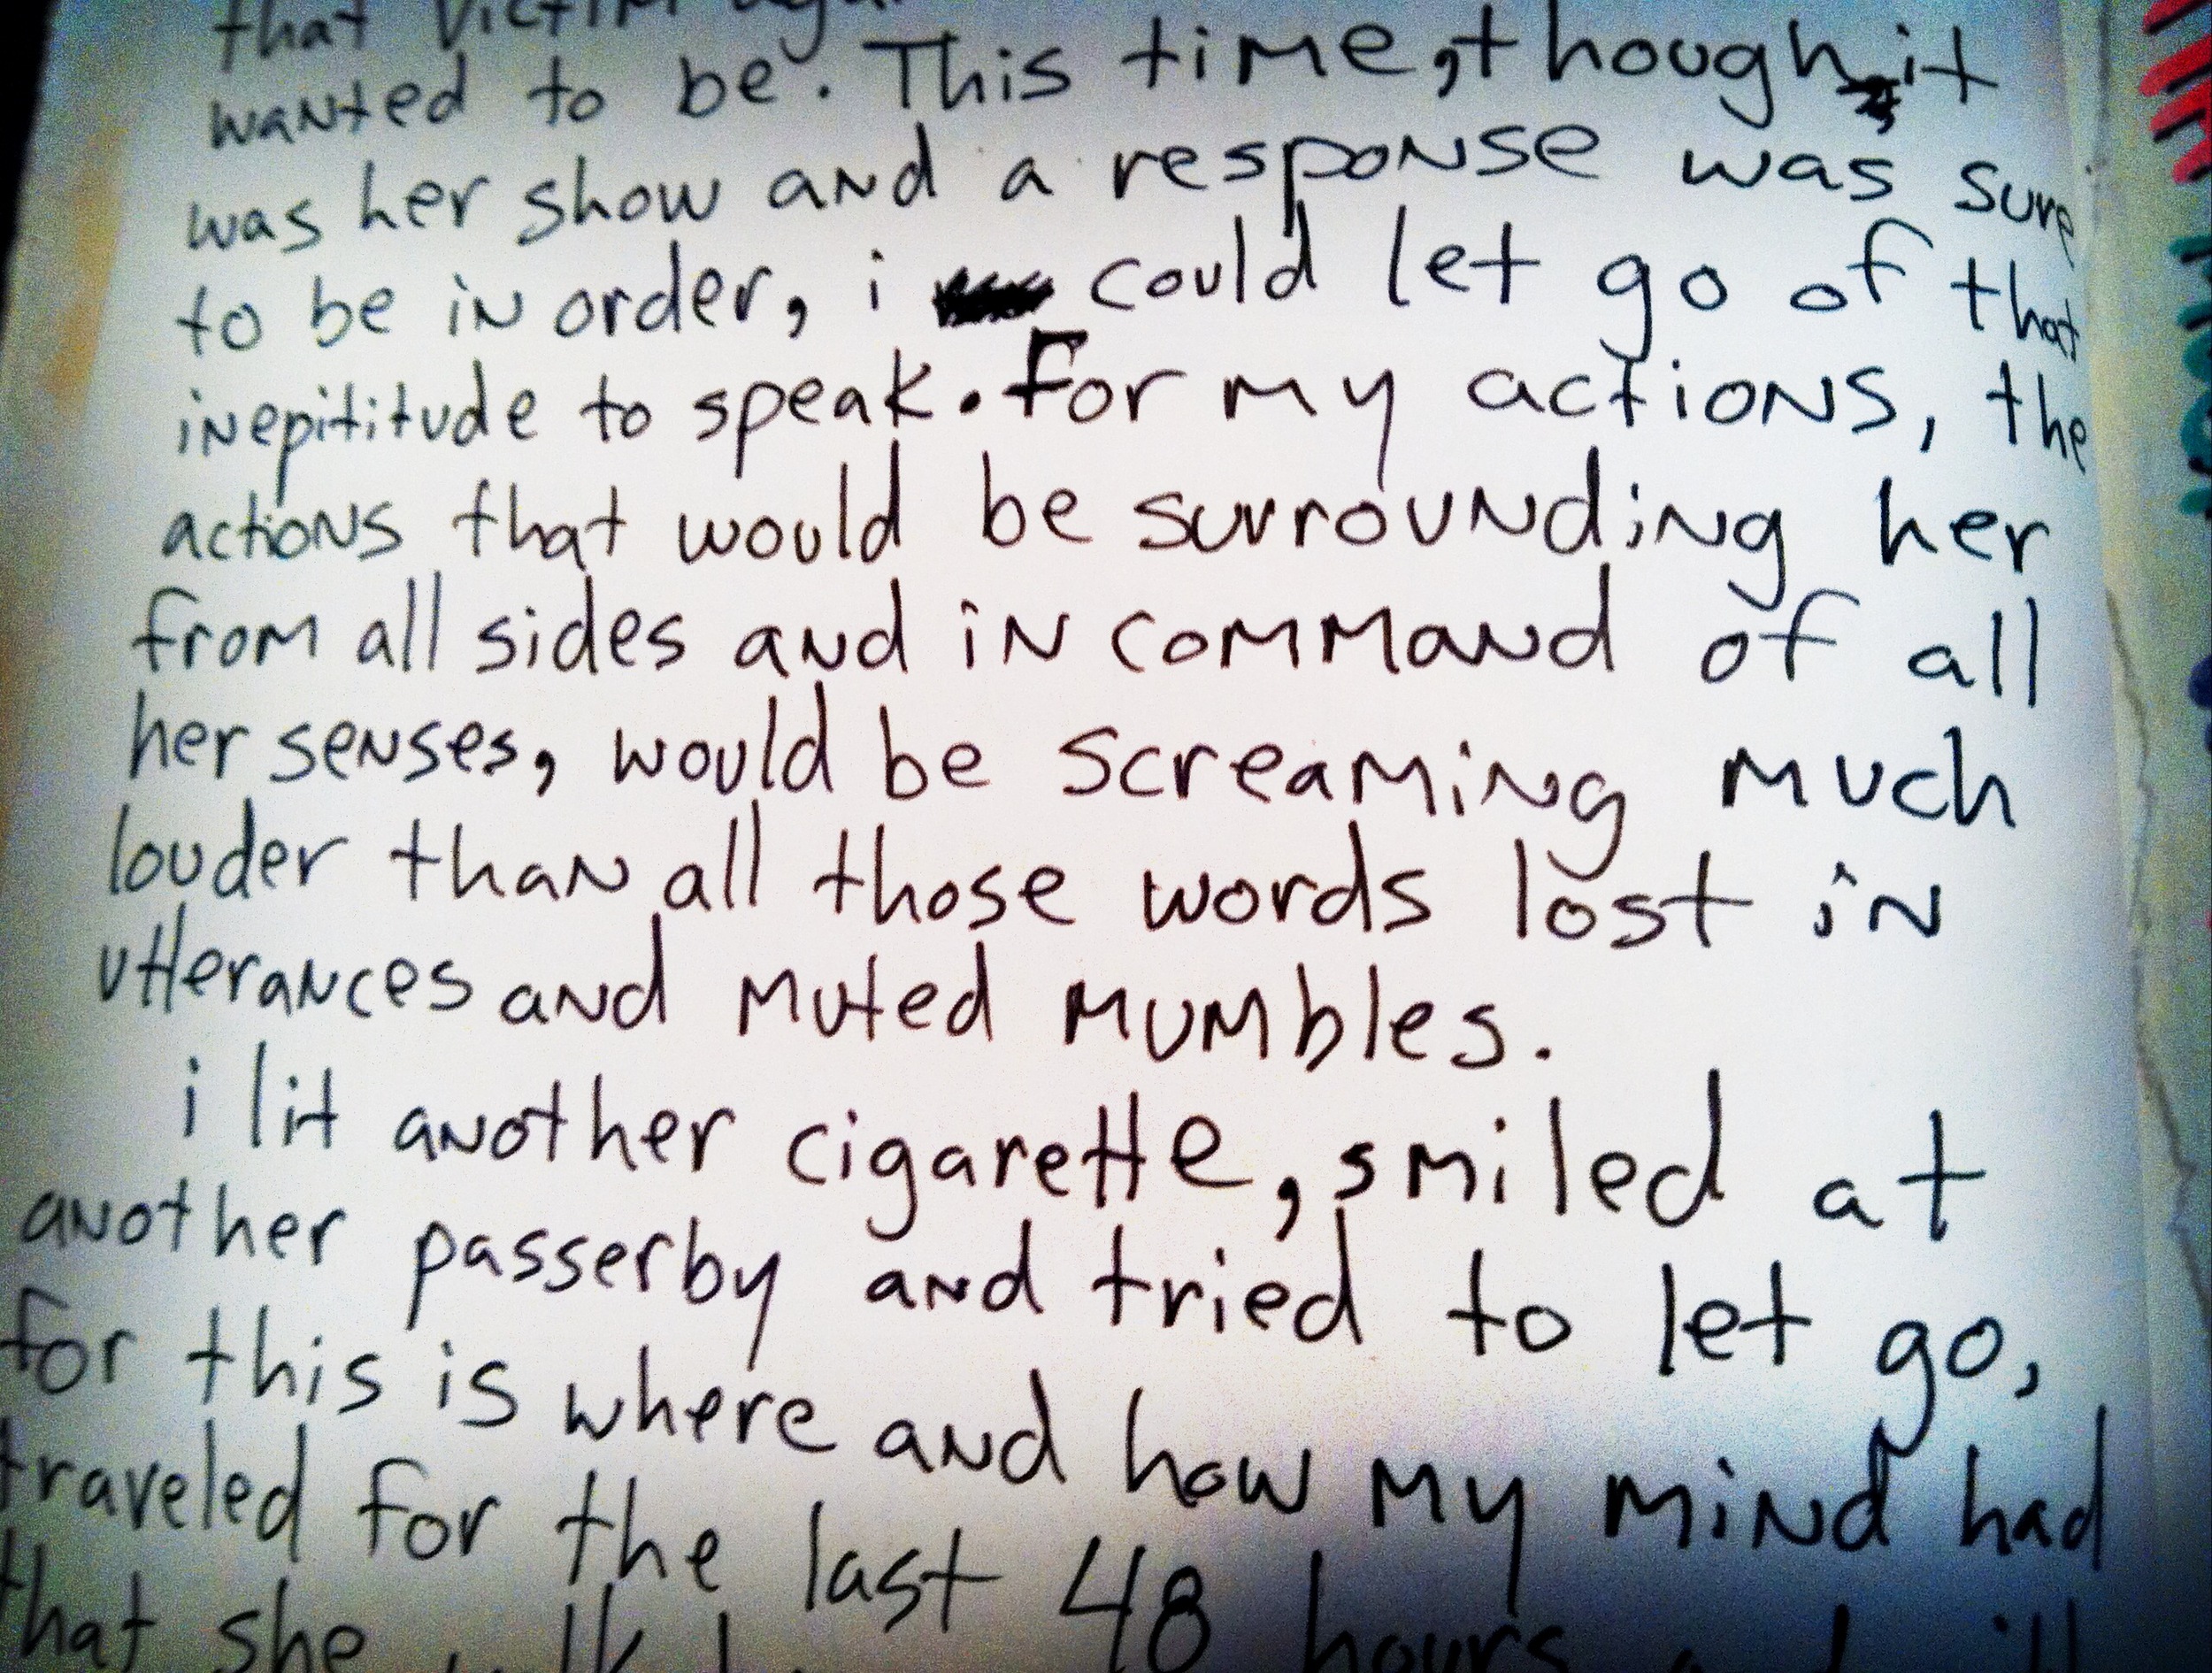 that victim
wanted to be. This time, though, it
was her show and a response was sure
to be in order, i could let go of that
inepititude to speak. For my actions, the
actions that would be surrounding her
from all sides and in command of all
her senses, would be screaming much
louder than all those words lost in
utterances and muted mumbles.
i lit another cigarette, smiled at
another passerby and tried to let go,
for this is where and how my mind had
traveled for the last 48 hours
that she